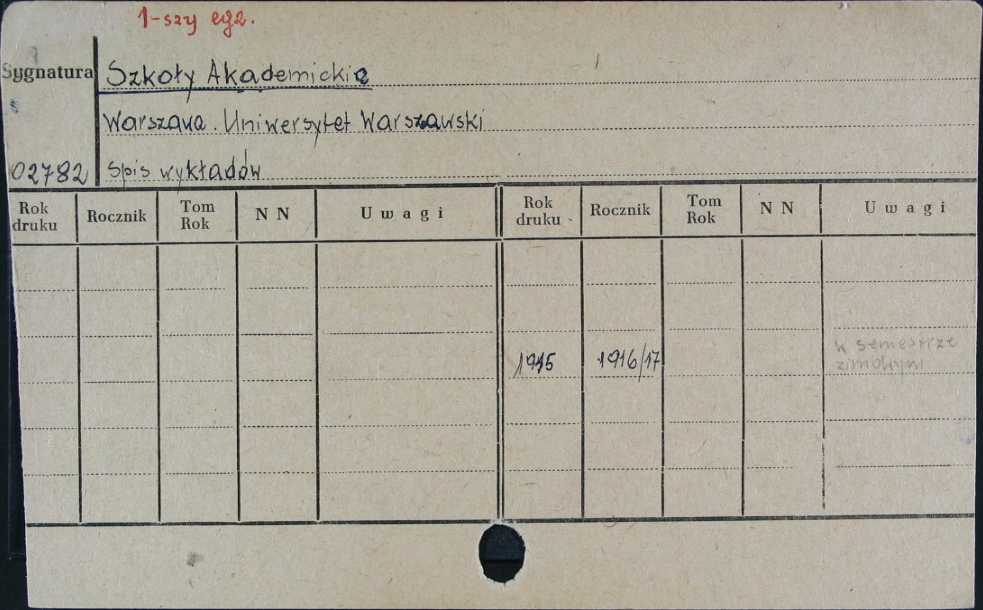 1-szy egz.
Sygnatura Szkoły Akademickie
Warszawa. Uniwersytet Warszawski
02782 Spis wykładów
Rok druku Rocznik Tom Rok N N Uwagi Rok druku Rocznik Tom Rok N N Uwagi
1915 1916/17 w semestrze
zimowym